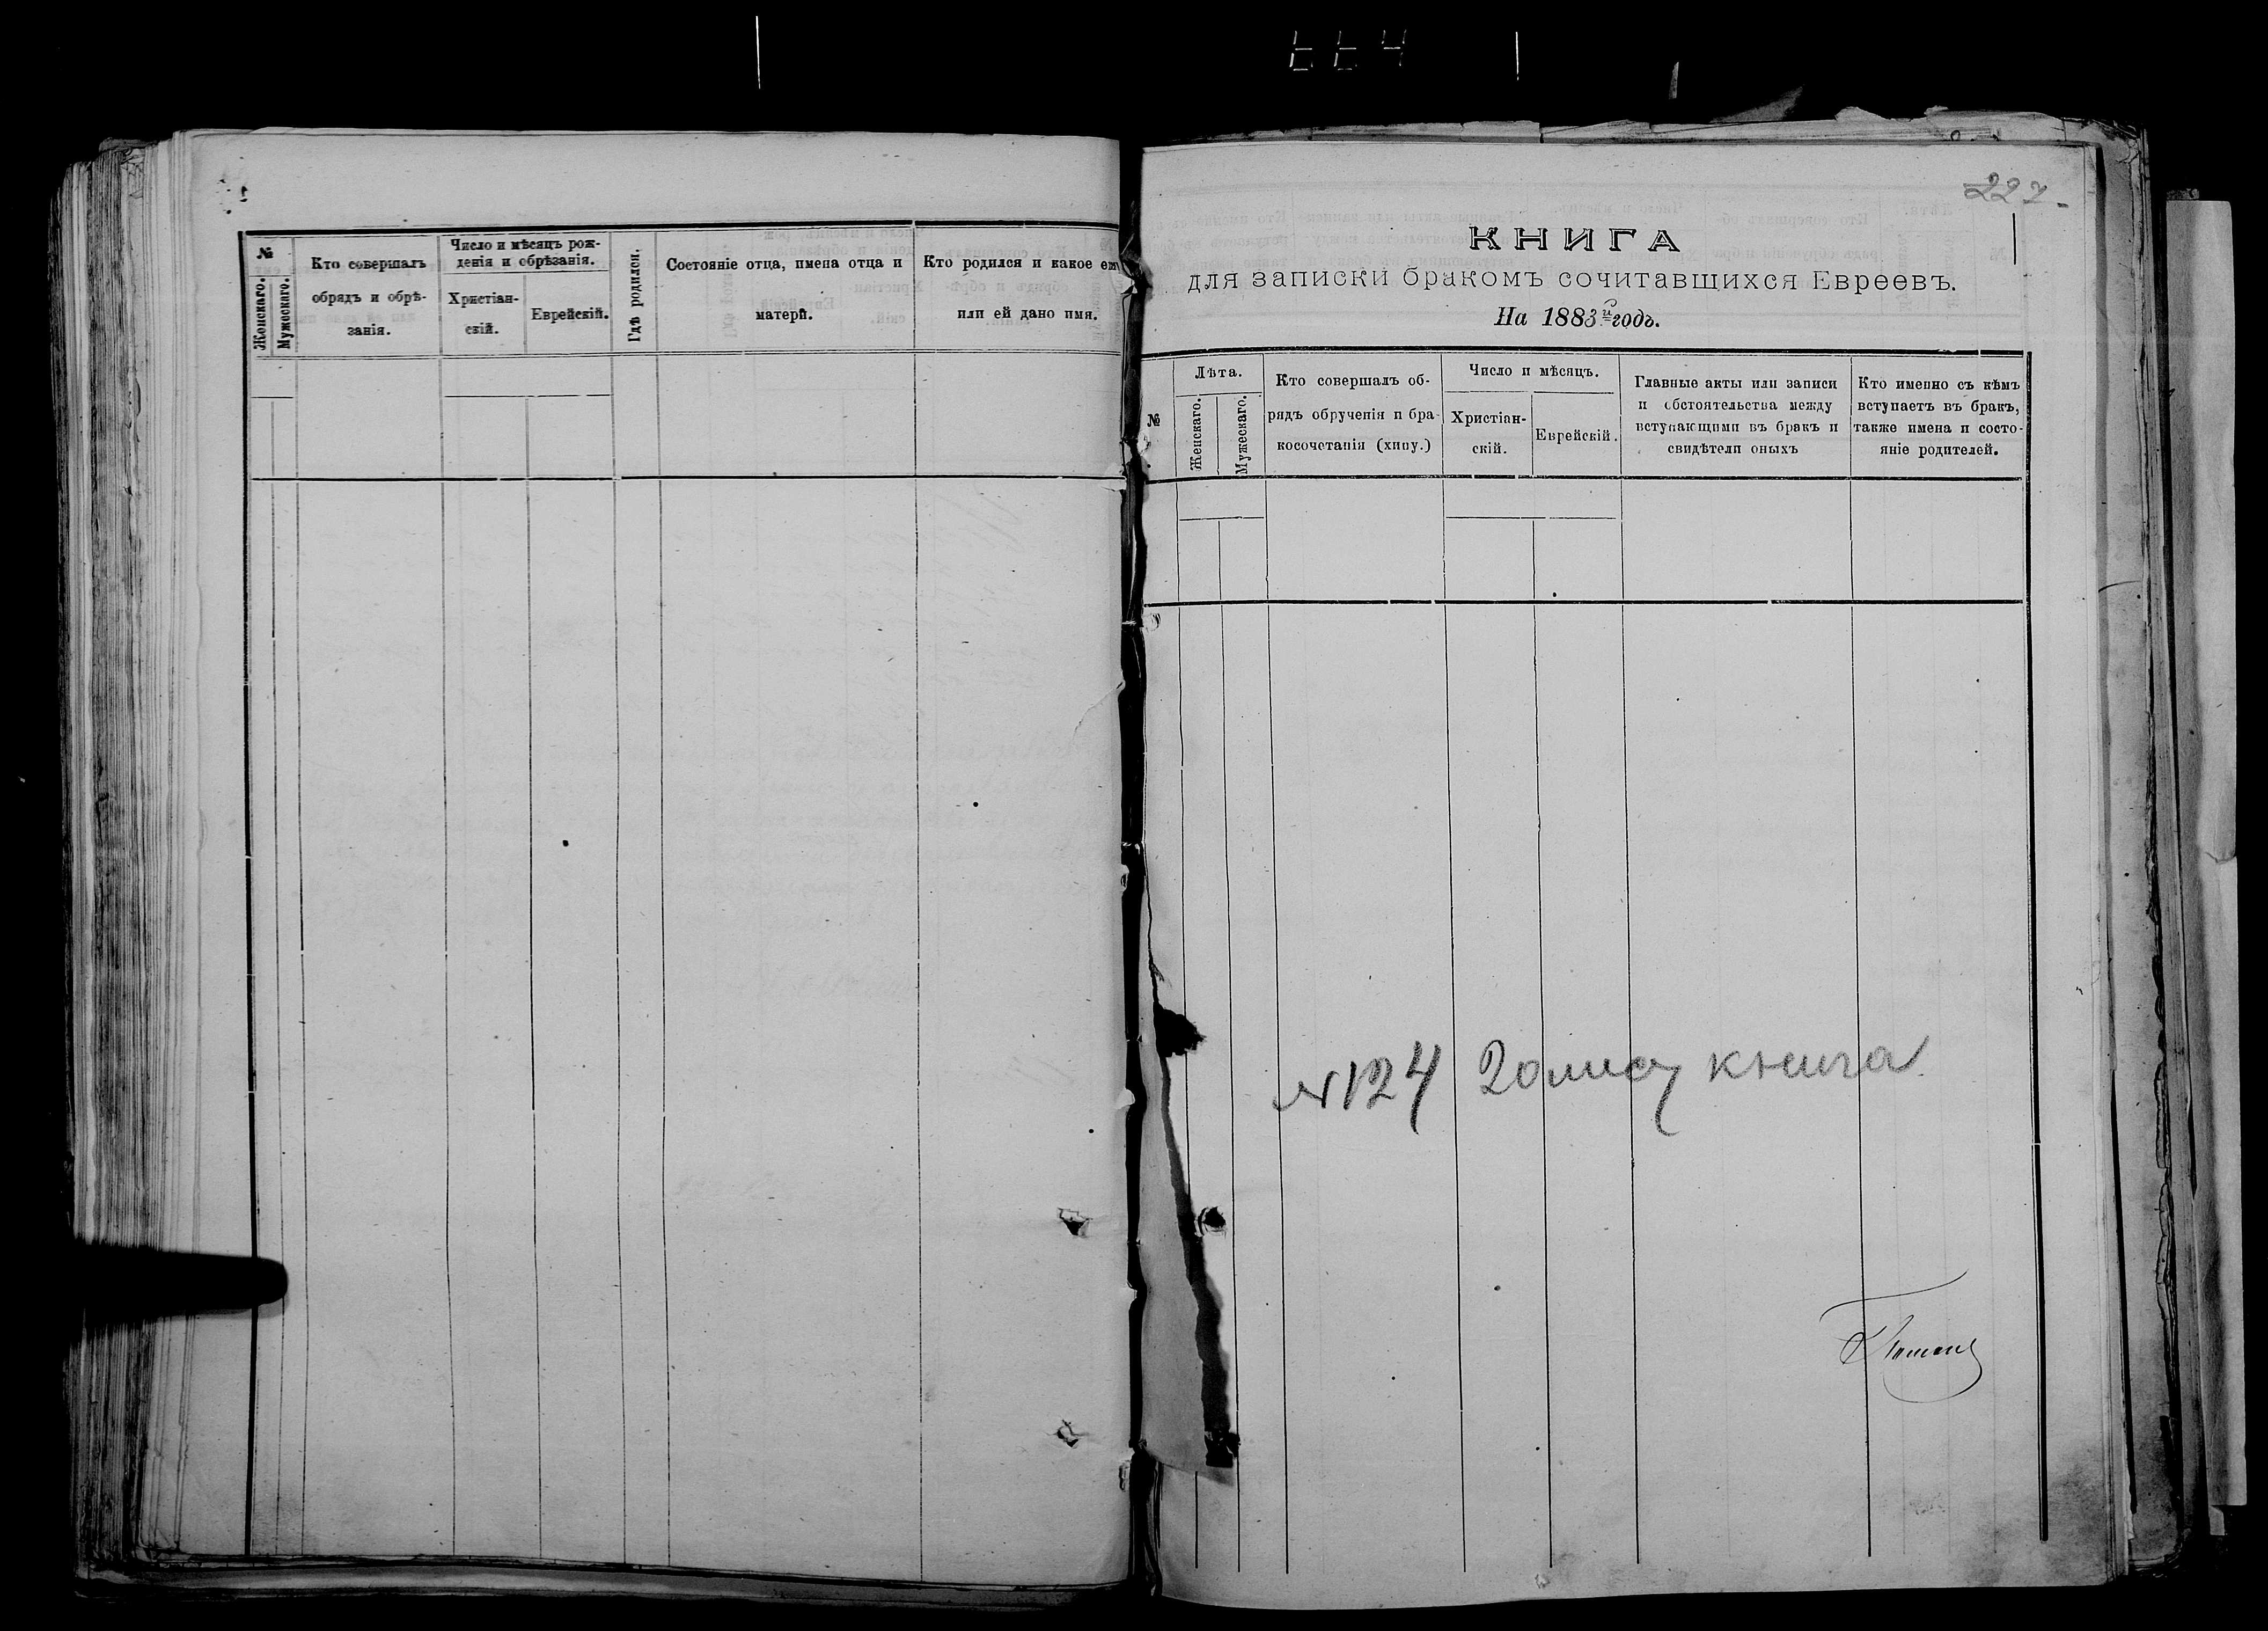 №
Женскаго.
Мужескаго.
Кто совершалъ
обрядъ и обрѣ-
занія.
Число и мѣсяцъ рож-
денія и обрѣзанія.
Христіан-
скій.
Еврейскій.
Гдѣ родился.
Состояніе отца, имена отца и
матери.
Кто родился и какое ему
или ей дано имя.
227
КНИГА
для записки бракомъ сочитавщихся Евреевъ.
На 1883й годъ.
№
Лѣта.
Женскаго.
Мужескаго.
Кто совершалъ об-
рядъ обрученія и бра-
косочетанія (хипу.)
Число и мѣсяцъ.
Христіан-
скій.
Еврейскій.
Главные акты или записи
и обстоятельства между
вступающими въ бракъ и
свидѣтели оныхъ
Кто именно съ кѣмъ
вступаетъ въ бракъ,
также имена и состо-
яніе родителей.
№124 книга